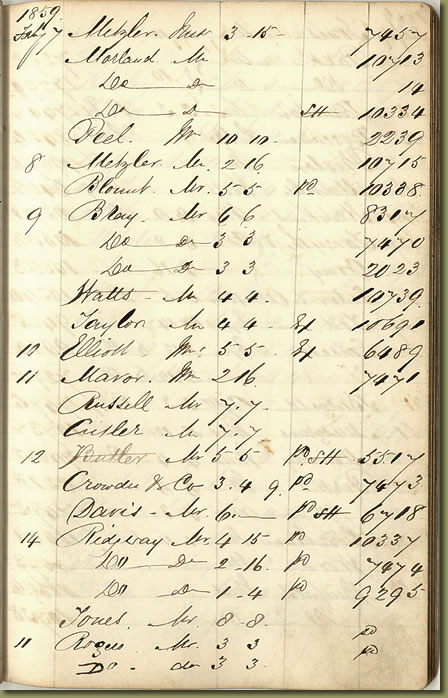 1859
Jany 7 Metzler Mess 3 - 15 - 7457
Morland Mr 10713
Do Do 14
Do D SH 10334
Peel. Wm 10 10 - 2239
8 Metzler Mr 2 16. 10715
Blount. Mr. 5 5 pd 10338
9 Bray. Mr 6 6 8317
Do Do 3 3 7470
Do Do 3 3 2023
Watts - Mr 4 4. 10739
Taylor Mr 4 4 - 10690
10 Elliott 5 5 6489
11 Mavor. Wm 2 16. 7471
Russell Mr 7. 7.
Cutler Mr 7. 7.
12 Butler Mr 5 5 pd. SH 5517
Crowder & Co 3. 4 9. pd 7473
Davis - Mr. 6. pd SH 6718
14 Ridgway Mr. 4 15 pd 10337
Do Do 2 - 16. pd 7474
Do Do 1 - 4 pd 9295
Jones. Mr. 8 - 8.
11 Rogers Mr. 3 3 pd
Do - do 3 3. pd